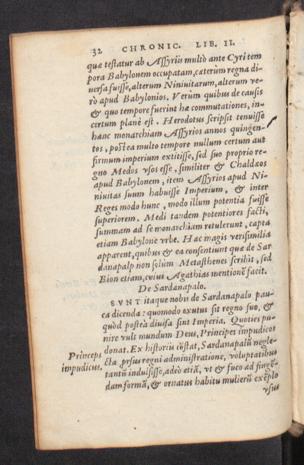 32 CHRONIC. LIB. II.
quæ testatur ab Assyriis multò ante Cyri tem
pora Babylonem occupatam, cæterùm regna di
uersa fuisse, alterum Niniuitarum, alterum ve-
rò apud Babylonios. Verùm quibus de causis
& quo tempore fuerint hæ commutationes, in-
certum planè est. Herodotus scripsit tenuisse
hanc monarchiam Assyrios annos quingen-
tos, postea multo tempore nullum certum aut
firmum imperium extitisse, sed suo proprio re-
gno Medos vsos esse, similiter & Chaldæos
apud Babylonem, item Assyrios apud Ni-
niuitas suum habuisse Imperium, & inter
Reges modo hunc, modo illum potentia fuisse
superiorem. Medi tandem potentiores facti,
summam ad se monarchiam retulerunt, capta
etiam Babylone vrbe. Hæc magis verisimilia
apparent, quibus & ea consentiunt quæ de Sar
danapalo non solùm Metasthenes scribit, sed
Bion etiam, cuius Agathias mentionē facit.
De Sardanapalo.
SVNT itaque nobis de Sardanapalo pau-
ca dicenda: quomodo exutus sit regno suo, &
quòd postea diuisa sint Imperia. Quoties pu-
nire vult mundum Deus, Principes impudicos
Princeps impudicus.
donat. Ex historiis cōstat, Sardanapalū negle-
cta prorsus regni administratione, voluptatibus
tantū indulsisse, adeò etiā, vt & fuco ad fingē-
dam formā, & ornatus habitu mulierū exēplo
vsus